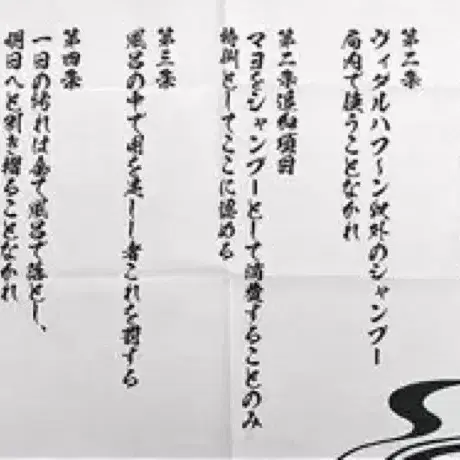 第二条
ヴィダルハフーン以外のシャンプー
局内で使うことなかれ
第二条追加項目
マヨをシャンプーとして消費することのみ
特例としてここに認める
第三条
風呂の中で用を足しし者これを罰する
第四条
一日の汚れは全て風呂で落とし、
明日へと引き摺ることなかれ